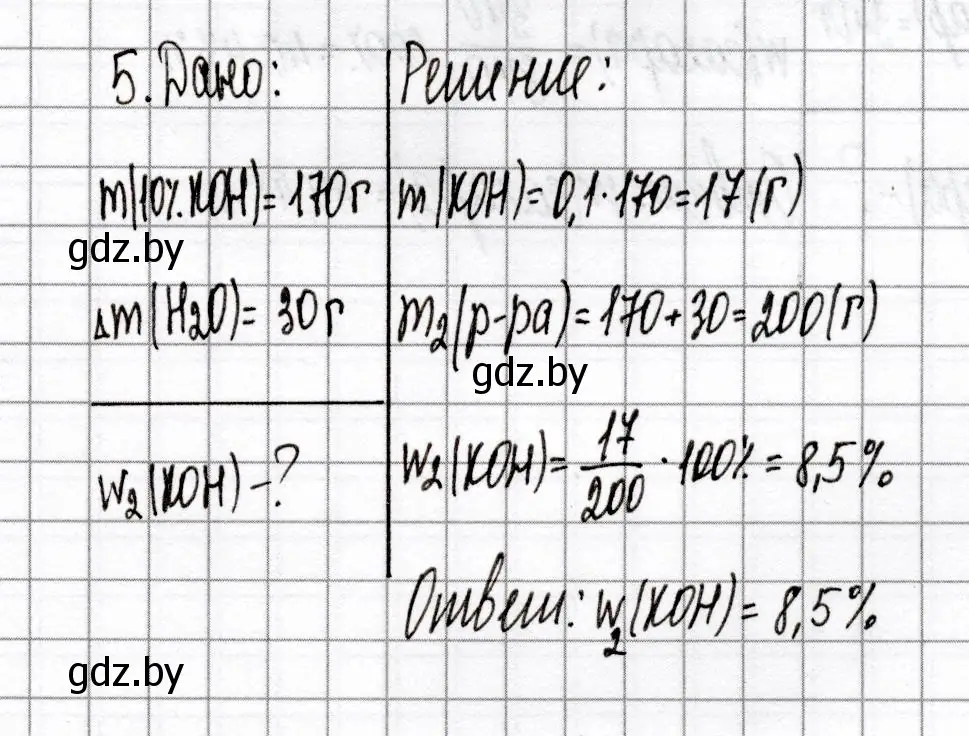 5. Дано:
m(10% KOH) = 170 г
gdz.by
Δm(H₂O) = 30 г
w₂(KOH) - ?
Решение:
m(KOH) = 0,1 · 170 = 17 (г)
m₂(р-ра) = 170 + 30 = 200 (г)
gdz.by
w₂(KOH) = 17/200 · 100% = 8,5%
Ответ: w₂(KOH) = 8,5%
gdz.by